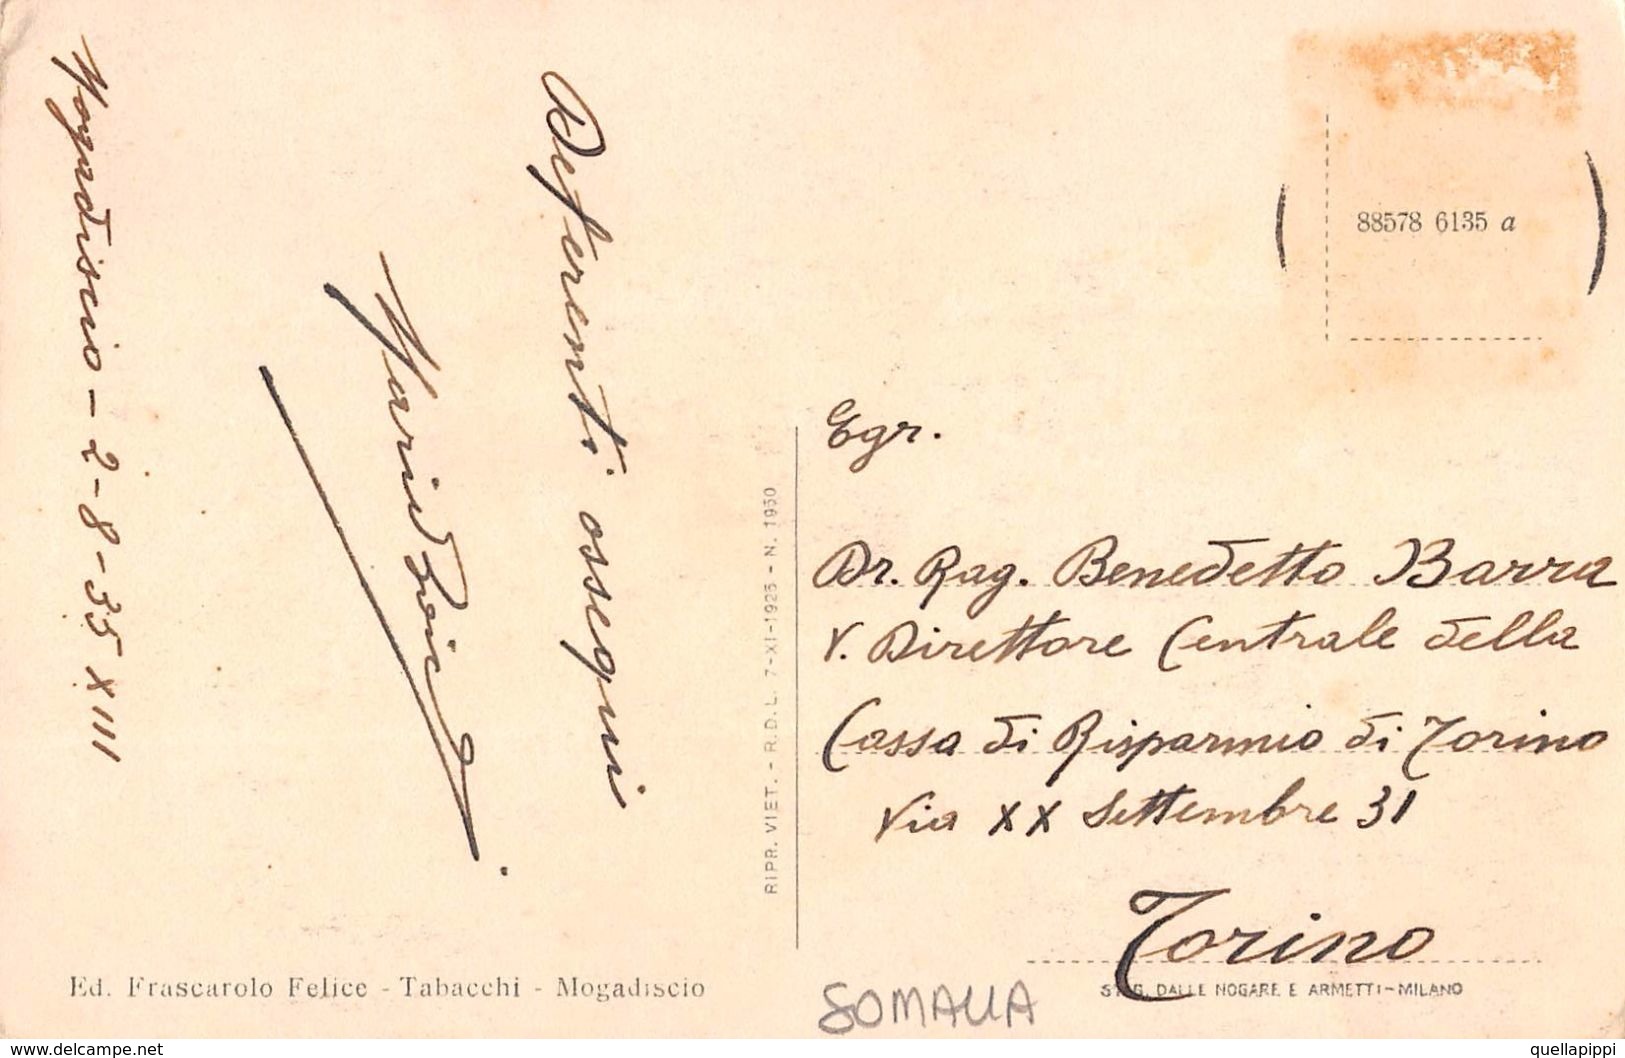 Mogadiscio - 2-8-35 XIII
Deferenti ossequi
Mario
RIPR. VIET. - R.D.L. 7-XI-1925 - N. 1950
88578 6135 a
Egr.
Dr. Rag. Benedetto Barra
V. Direttore Centrale della
Cassa di Risparmio di Torino
Via XX Settembre 31
Torino
Ed. Frascarolo Felice - Tabacchi - Mogadiscio
SOMALIA
STAB. DALLE NOGARE E ARMETTI-MILANO
www.delcampe.net
quellapippi